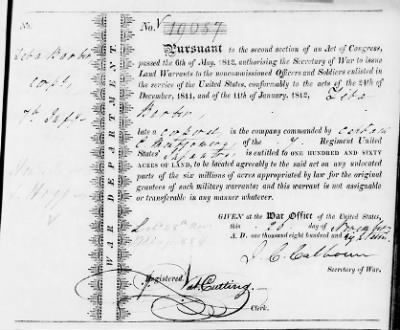 No.
Pursuant to the second section of an Act of Congress,
passed the 6th of May, 1812, authorising the Secretary of War to issue
Land Warrants to the noncommissioned Officers and Soldiers enlisted in
the service of the United States, conformably to the acts of the 24th of
December, 1811, and of the 11th of January, 1812,
Barber,
late a corporal in the company commanded by captain
Montgomery of the 7. Regiment United
States' Infantry, is entitled to ONE HUNDRED AND SIXTY
ACRES OF LAND, to be located agreeably to the said act on any unlocated
parts of the six millions of acres appropriated by law for the original
grantees of such military warrants; and this warrant is not assignable
or transferable in any manner whatever.
GIVEN at the War Office of the United States,
this 20. day of
A. D. one thousand eight hundred and
J. C. Calhoun
Secretary of War.
Registered
Nat. Cutting.
Clerk.
WAR DEPARTMENT.
Barber
corpl,
7th Infty